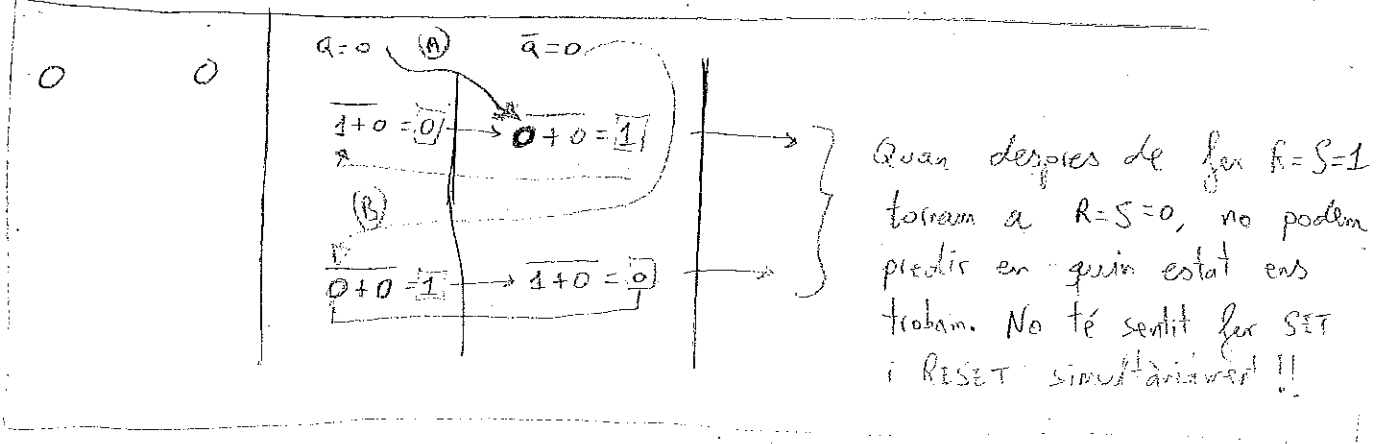 Q=0 (A) Q̅=0
0 0
1+0 = 0 → 0+0 = 1 →
(B)
0+0 = 1 → 1+0 = 0 →
Quan despres de fer R=S=1
tornam a R=S=0, no podem
predir en quin estat ens
trobam. No té sentit fer SET
i RESET simultàniament!!